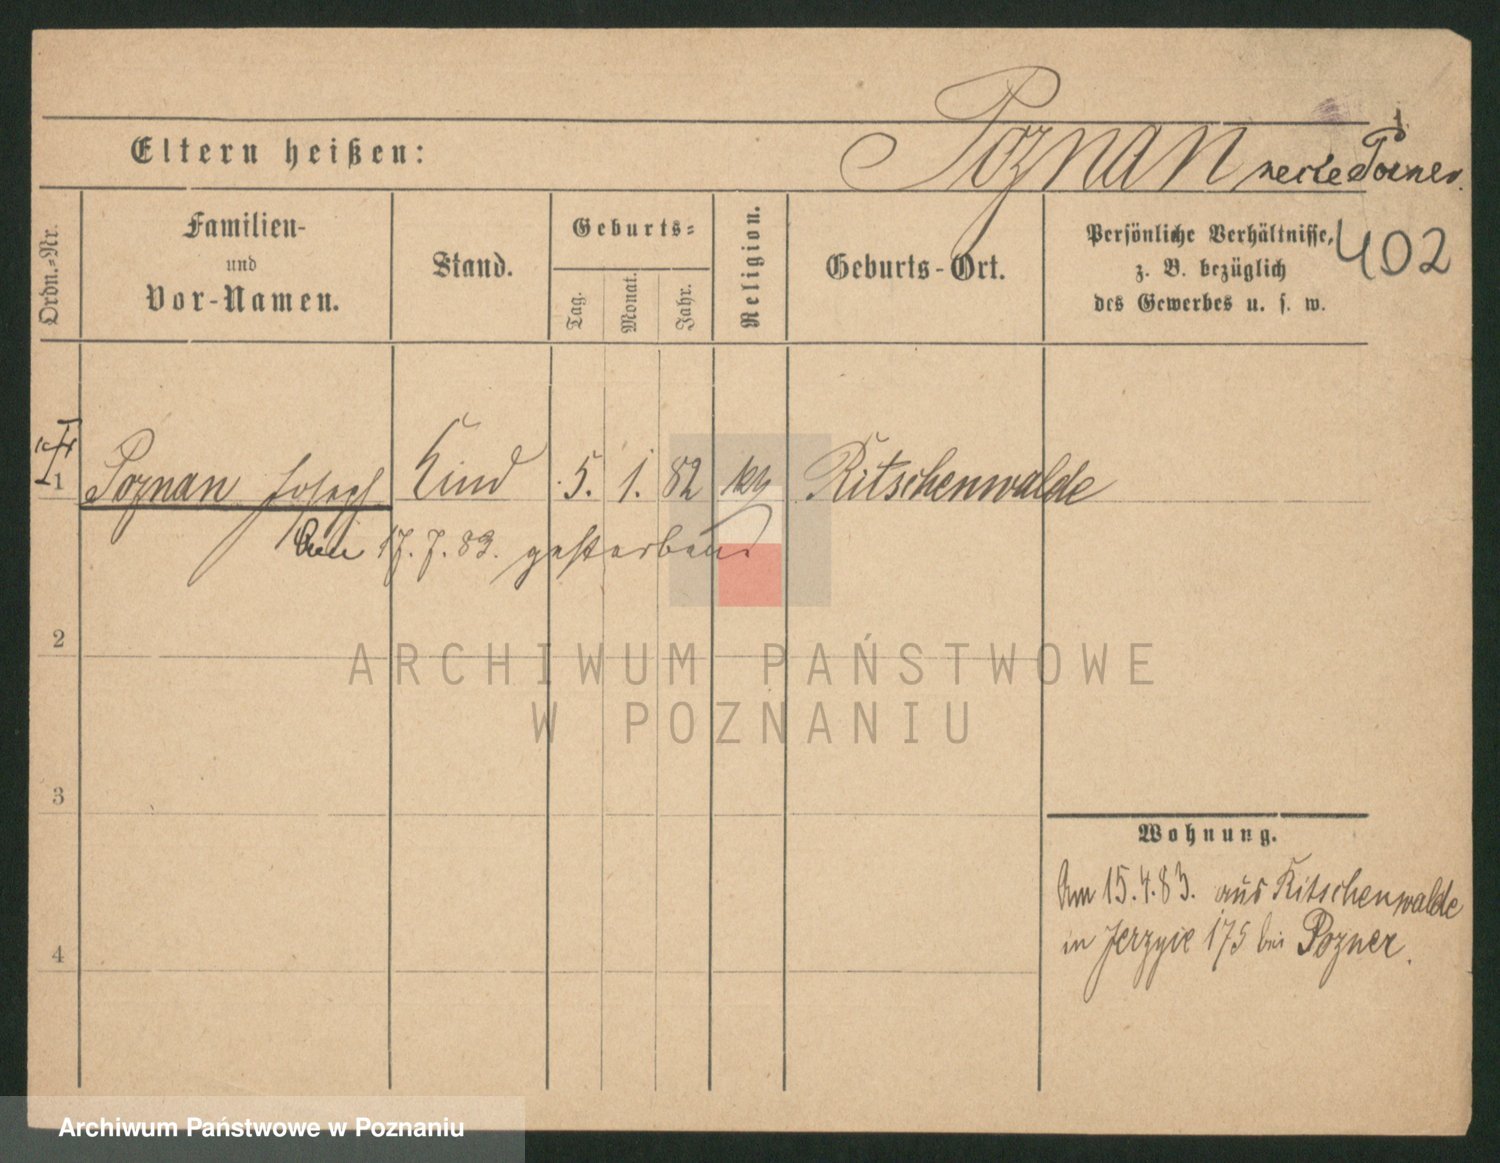 Eltern heißen:
Poznan recte Posner.
Ordn.-Nr.
Familien-
und
Vor-Namen.
Stand.
Geburts-
Tag.
Monat.
Jahr.
Religion.
Geburts-Ort.
Persönliche Verhältnisse,
z. B. bezüglich
des Gewerbes u. s. w.
402
1 Poznan Joseph Kind 5. 1. 82 Ritschenwalde
Am 17.7.83. gestorben.
2
3
4
Wohnung.
Am 15.4.83. aus Ritschenwalde
in Jerzyce 175 bei Pozner.
ARCHIWUM PAŃSTWOWE
W POZNANIU
Archiwum Państwowe w Poznaniu